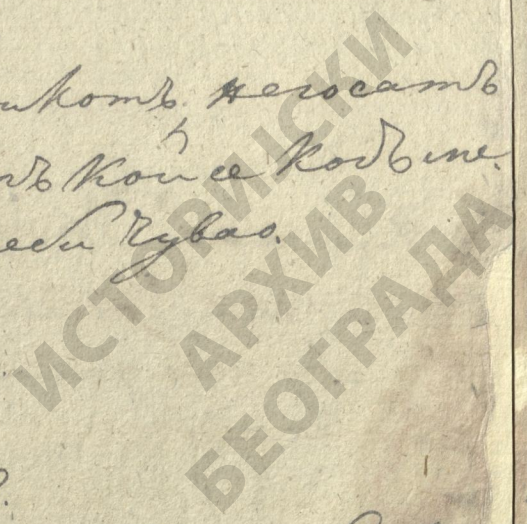 икотъ, негосатъ
нъ кой се кодъ ме.
себи чувао.
ИСТОРИЈСКИ
АРХИВ
БЕОГРАДА